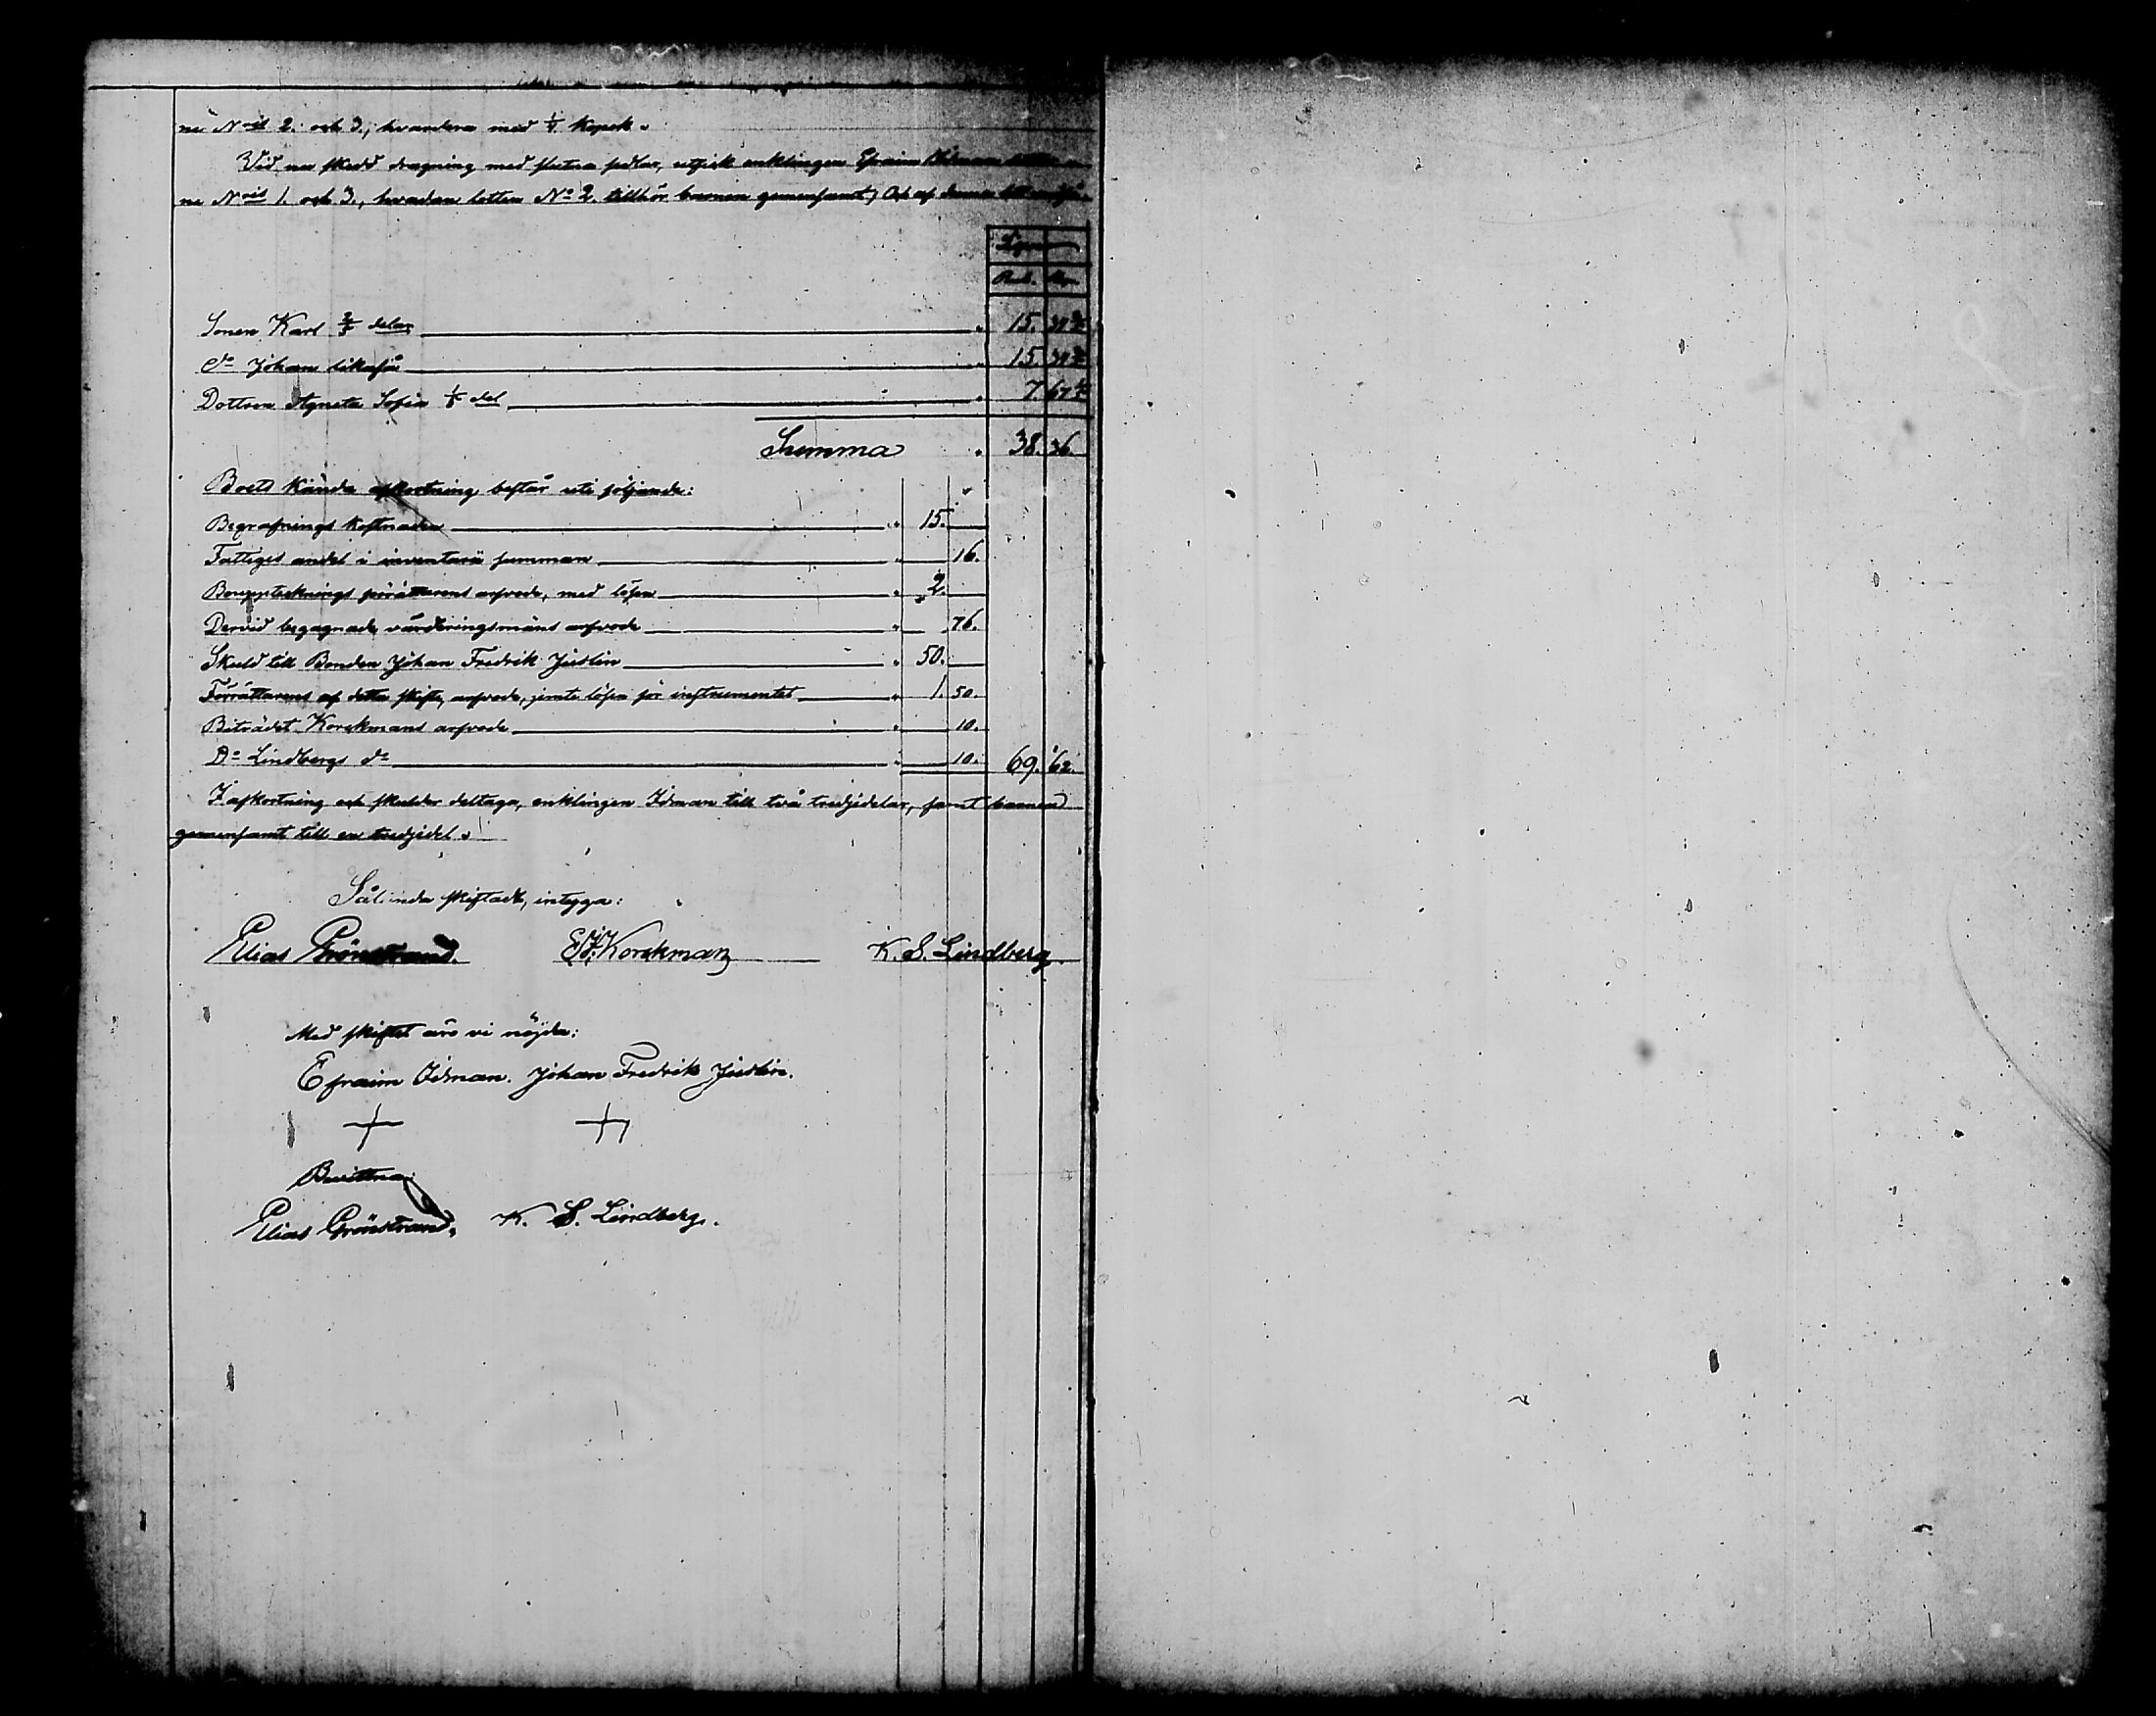 ne N:ris 2. och 3., hvardera med ¼ Kopek.
Vid nu skedd dragning med slutna sedlar, utfick enklingen Efraim Ödman
ne N:ris 1. och 3., hvadan lotten N:o 2. tillhör barnen gemensamt, Och af denna
Sonen Karl 2/5 delar " 15.
d:o Johan likaså " 15.
Dottren Agneta Sofia 1/5 del " 7. 67
Summa " 38. 36.
Boets kända afkortning består uti följande:
Begrafnings kostnaden " 15.
Fattiges andel i inventarii summan " 16.
Bouppteknings förrättarens arfvode, med lösen " 2.
Dervid begagnade värderingsmäns arfvode " 76.
Skuld till Bonden Johan Fredrik Juslin " 50.
Förrättarens af detta skifte, arfvode, jemte lösen för instrumentet " 1. 50.
Biträdet Korckmans arfvode " 10.
D:o Lindbergs d:o " 10. 69. 62.
I afkortning och skulder deltaga, enklingen Ödman till två tredjedelar, samt barnen
gemensamt till en tredjedel.
Sålunda skiftadt, intyga:
Elias Grönstrand. Korckman K. S. Lindberg.
Med skiftet äro vi nöjda:
Efraim Ödman. Johan Fredrik Juslin.
Bevittna:
Elias Grönstrand. K. S. Lindberg.